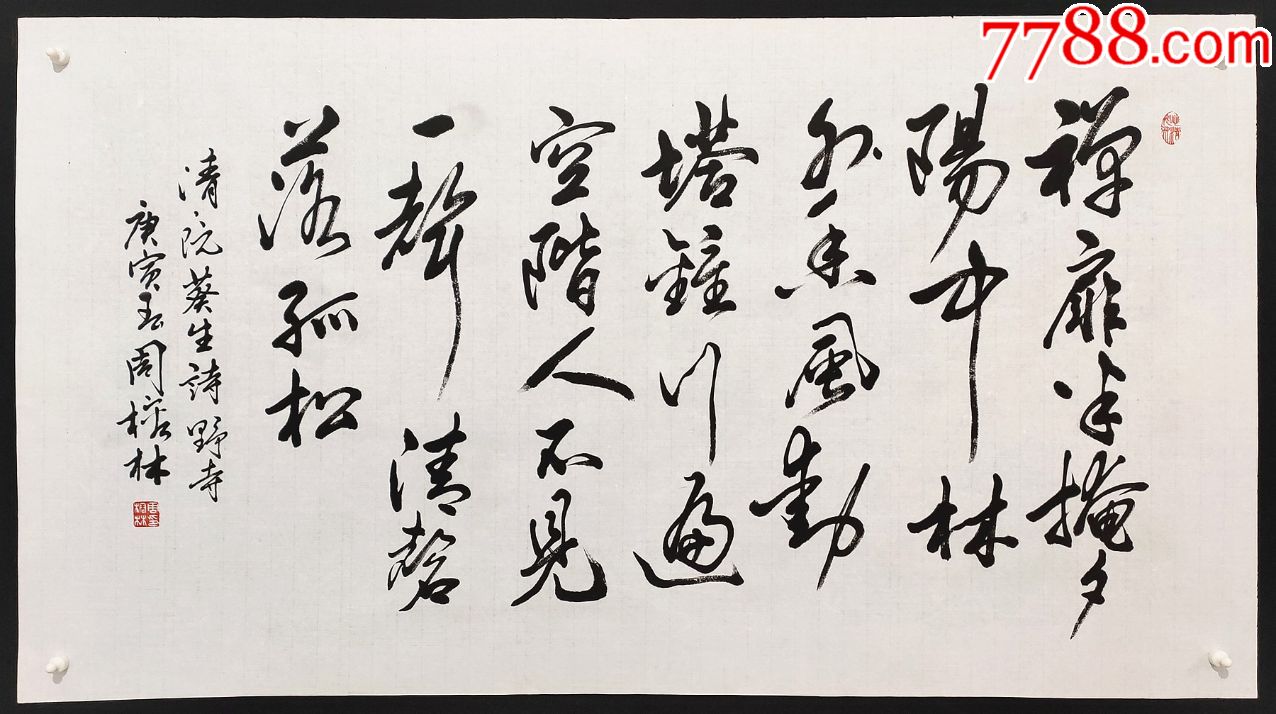 7788.com
禪扉半掩夕
陽中林
外長風動
塔鐘行遍
空階人不見
一聲清磬
落孤松
清阮葵生詩野寺
庚寅周榕林